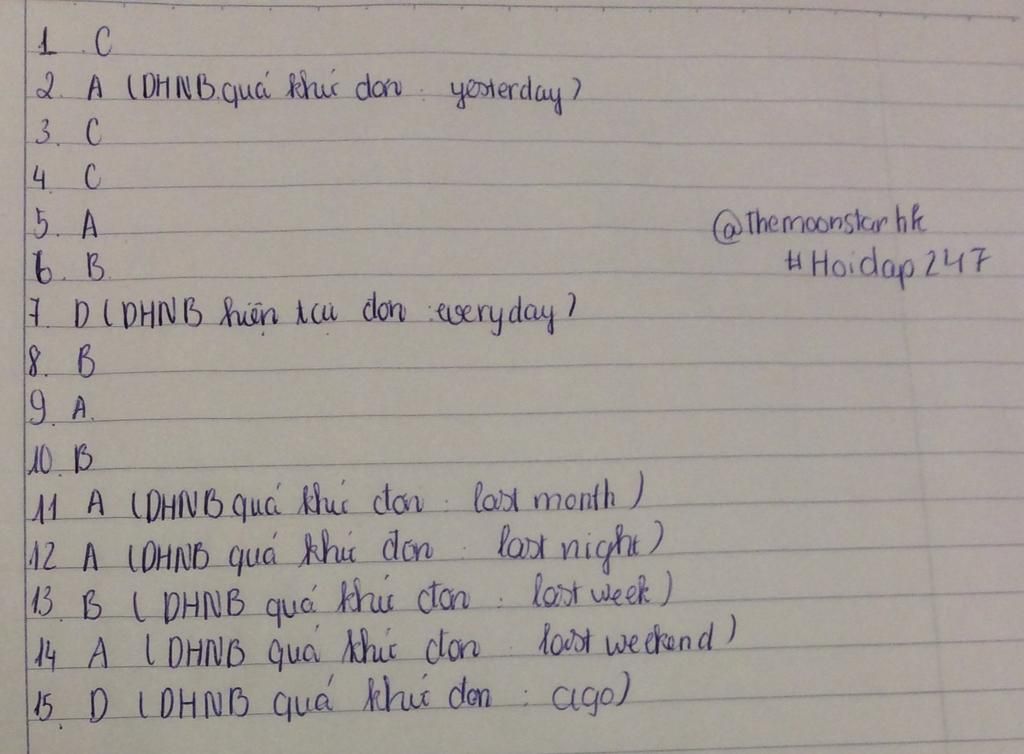 1. C
2. A (DHNB quá khứ đơn : yesterday)
3. C
4. C
5. A
@Themoonstarhk
6. B.
#Hoidap247
7. D (DHNB hiện tại đơn : everyday)
8. B
9. A.
10. B
11 A (DHNB quá khứ đơn : last month)
12 A (DHNB quá khứ đơn : last night)
13. B (DHNB quá khứ đơn : last week)
14 A (DHNB quá khứ đơn : last weekend)
15. D (DHNB quá khứ đơn : ago)